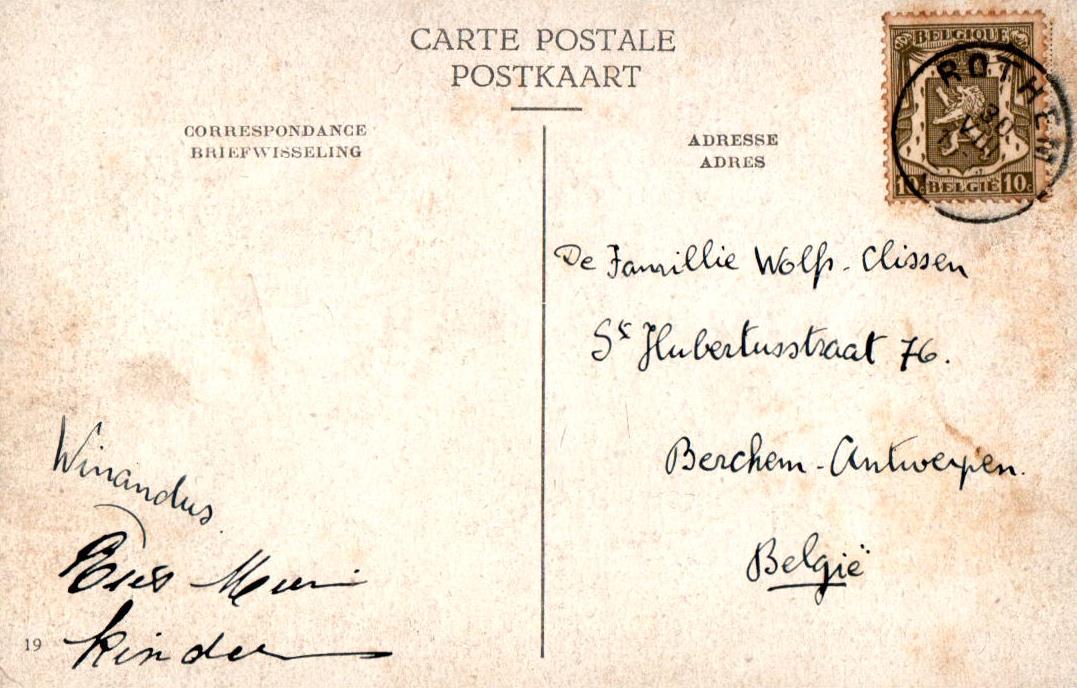 CARTE POSTALE
POSTKAART
CORRESPONDANCE
BRIEFWISSELING
ADRESSE
ADRES
BELGIQUE
ROTHEM
30
VIII
10c BELGIË 10c
De Famillie Wolfs-Clissen
St Hubertusstraat 76.
Berchem-Antwerpen.
België
Winandus
kinder
19